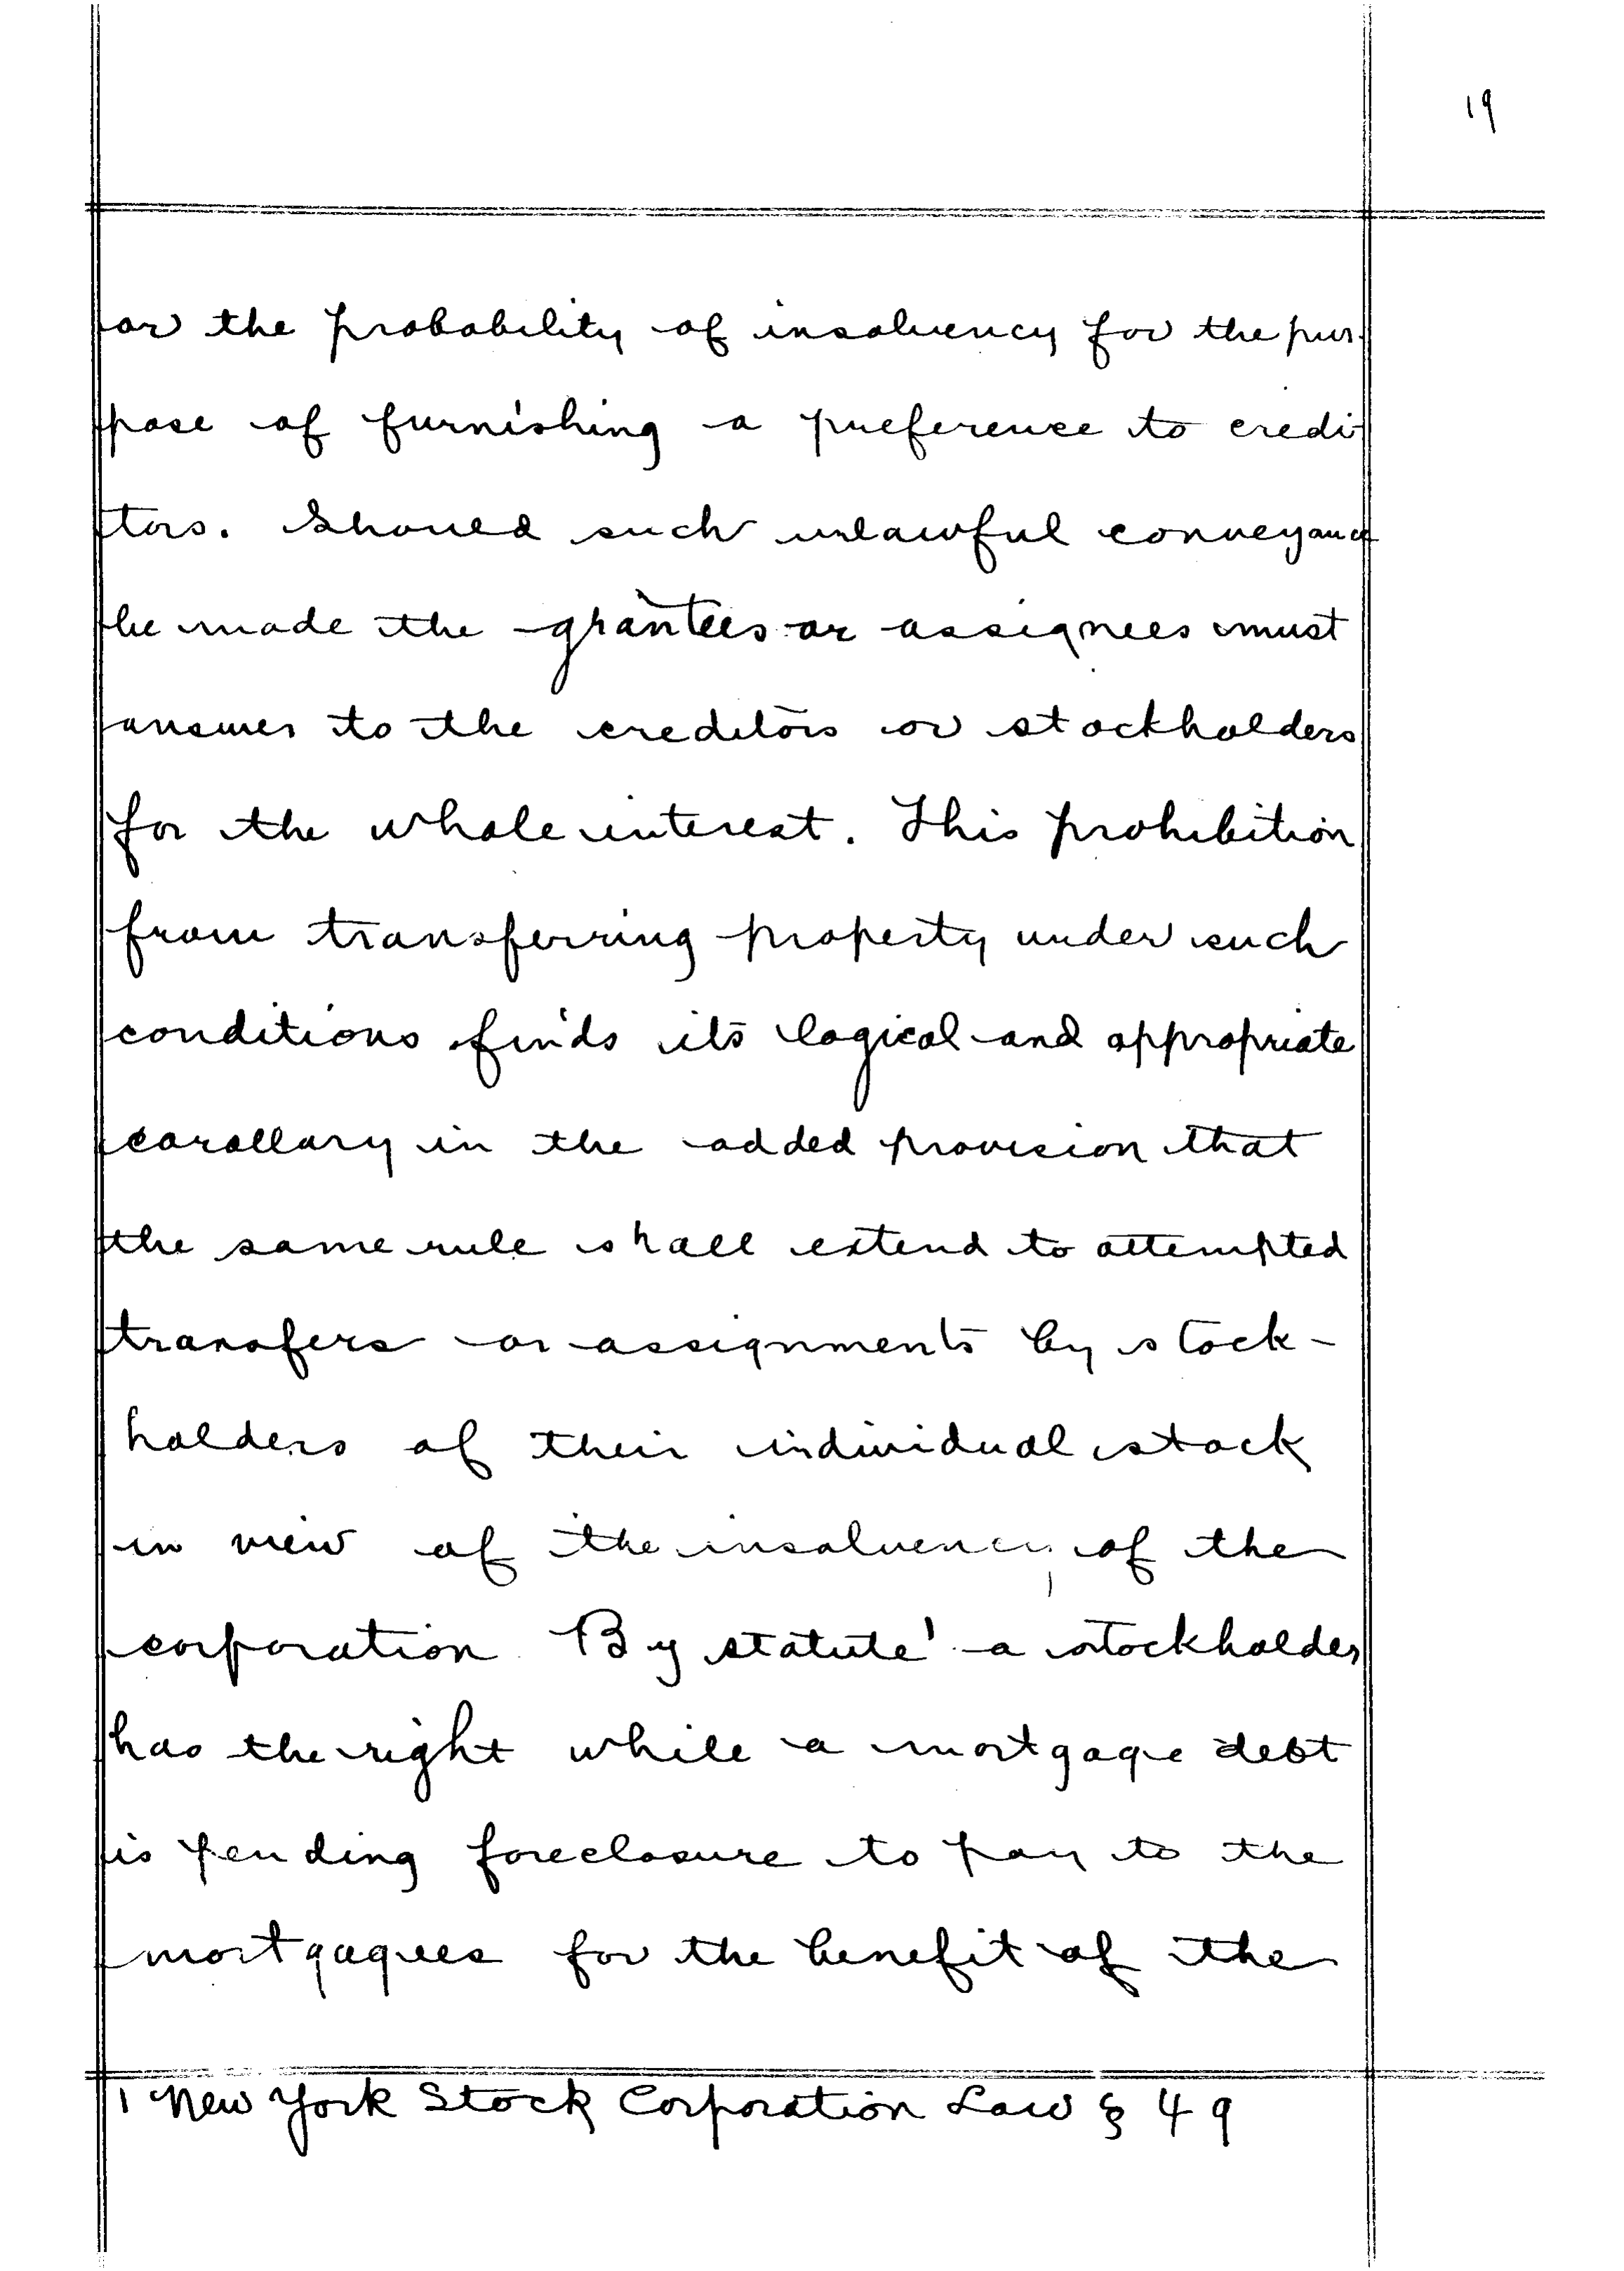 19
or the probability of insolvency for the pur-
pose of furnishing a preference to credi-
tors. Should such unlawful conveyance
be made the grantees or assignees must
answer to the creditors or stockholders
for the whole interest. This prohibition
from transferring property under such
conditions finds its logical and appropriate
corollary in the added provision that
the same rule shall extend to attempted
transfers or assignments by stock-
holders of their individual stock
in view of the insolvency of the
corporation. By statute¹ a stockholder
has the right while a mortgage debt
is pending foreclosure to pay to the
mortgagees for the benefit of the
1 New York Stock Corporation Law § 49